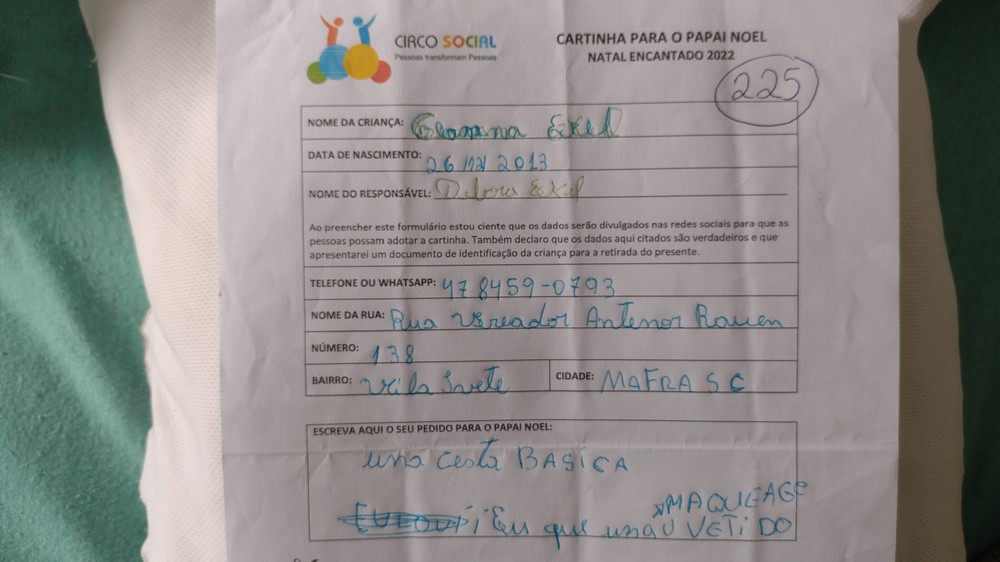 CIRCO SOCIAL
Pessoas transformam Pessoas
CARTINHA PARA O PAPAI NOEL
NATAL ENCANTADO 2022
225
NOME DA CRIANÇA: Geovanna Ekel
DATA DE NASCIMENTO: 26/12/2013
NOME DO RESPONSÁVEL: Debora Ekel
Ao preencher este formulário estou ciente que os dados serão divulgados nas redes sociais para que as
pessoas possam adotar a cartinha. Também declaro que os dados aqui citados são verdadeiros e que
apresentarei um documento de identificação da criança para a retirada do presente.
TELEFONE OU WHATSAPP: 47 8459-0793
NOME DA RUA: Rua Vereador Antenor Rauen
NÚMERO: 138
BAIRRO: Vila Ivete
CIDADE: MAFRA SC
ESCREVA AQUI O SEU PEDIDO PARA O PAPAI NOEL:
uma cesta BASICA
MAQUEAGE
Eu que uma VETIDO